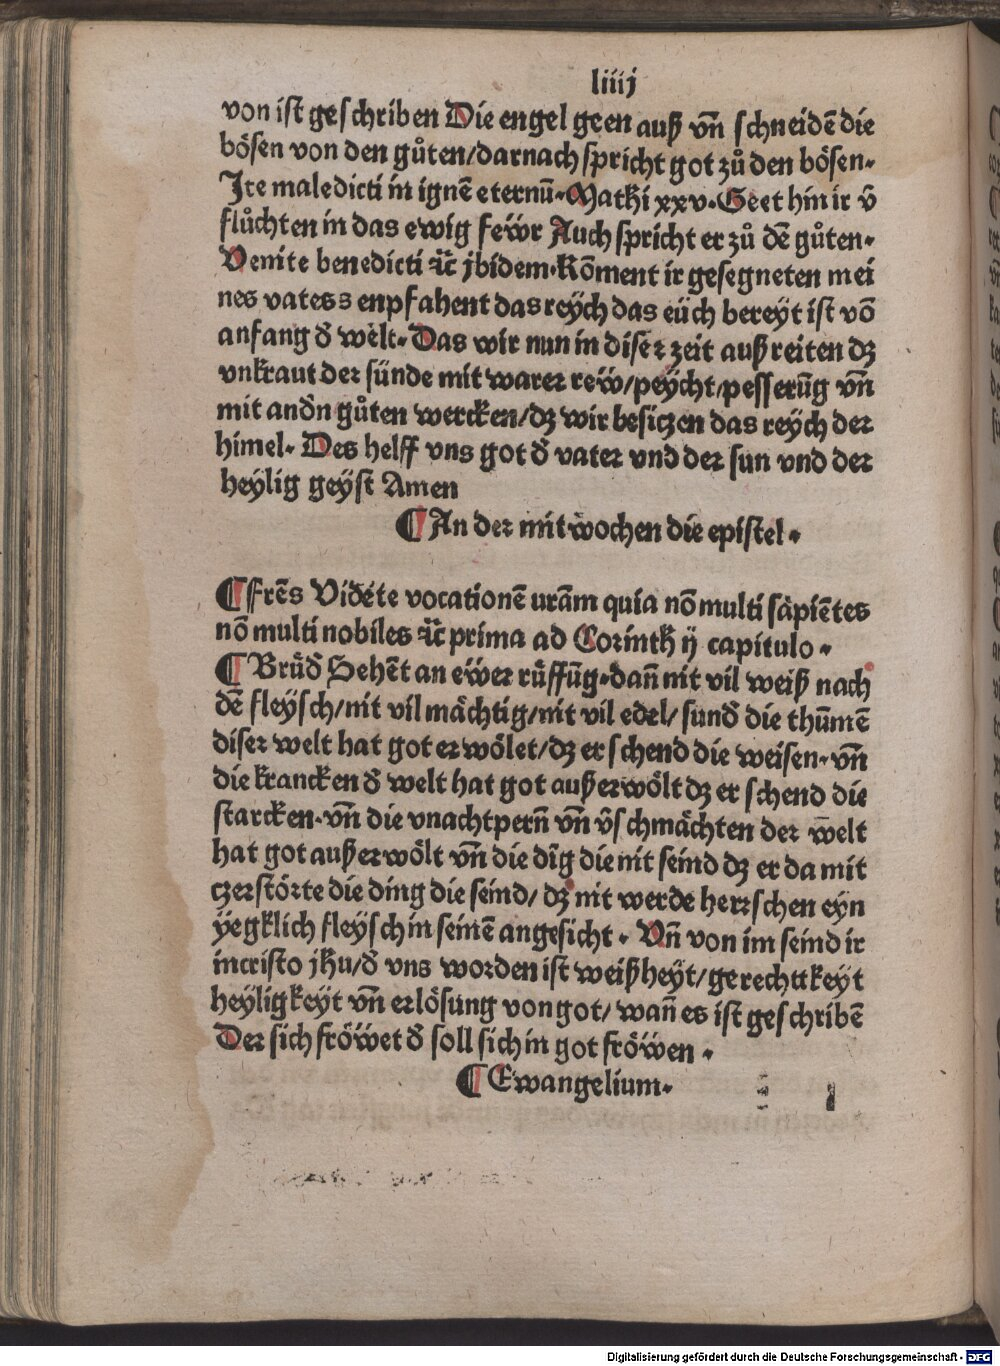 liiij
von ist geschriben Die engel geen auß vñ schneidē die
bösen von den gůten/darnach spricht got zů den bösen.
Ite maledicti in ignē eternū. Mathi xxv. Geet hin ir v̄
flůchten in das ewig fewr Auch spricht er zů dē gůten.
Venite benedicti ⁊c̄ jbidem. Kōment ir gesegneten mei
nes vatess enpfahent das reÿch das eüch bereÿt ist vō
anfang d̄ welt. Das wir nun in diser zeit auß reiten dz
vnkraut der sünde mit warer rew/peÿcht/pesserūg vñ
mit andn gůten wercken/dz wir besiczen das reÿch der
himel. Des helff vns got d̄ vater vnd der sun vnd der
heÿlig geÿst Amen
¶ An der mitwochen die epistel.
¶ Frēs Vidéte vocationē urām quia nō multi sapiētes
nō multi nobiles ⁊c̄ prima ad Corinth ij capitulo.
¶ Brüd̄ Sehēt an ewer rüffūg. dañ nit vil weiß nach
dē fleÿsch/nit vil mächtig/nit vil edel/sund̄ die thūmē
diser welt hat got erwölet/dz er schend die weisen. vñ
die krancken d̄ welt hat got außerwölt dz er schend die
starcken. vñ die vnachtperñ vñ v̄schmächten der welt
hat got außerwölt vñ die dīg die nit seind dz er da mit
czerstörte die ding die seind/dz nit werde herrschen eÿn
ÿegklich fleÿsch in seinē angesicht. Vñ von im seind ir
in cristo jhu/d̄ vns worden ist weißheÿt/gerechttkeÿt
heÿligkeÿt vñ erlösung von got/wañ es ist geschribē
Der sich fröwet d̄ soll sich in got fröwen.
¶ Ewangelium.
Digitalisierung gefördert durch die Deutsche Forschungsgemeinschaft - DFG